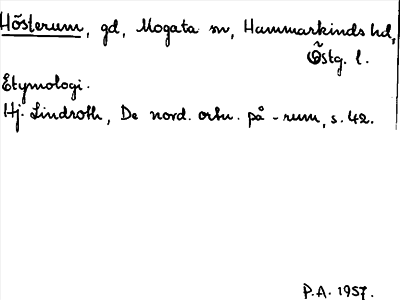 Hösterum, gd, Mogata sn, Hammarkinds hd,
Östg. l.
Etymologi.
Hj. Lindroth, De nord. ortn. på -rum, s. 42.
P.A. 1957.